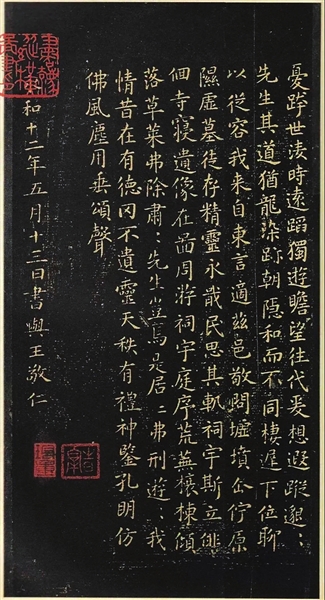 憂跨世淩時遠蹈獨遊瞻望往代爰想遐蹤邈〻
先生其道猶龍染跡朝隱和而不同棲遲下位聊
以從容我来自東言適茲邑敬問墟墳企佇原
隰虛墓徒存精靈永戢民思其軌祠宇斯立俳
佪寺寝遺像在啚周旋祠宇庭序荒蕪榱棟傾
落草萊弗除肅〻先生豈焉是居〻弗刑遊〻我
情昔在有德罔不遺靈天秩有禮神鑒孔明仿
佛風塵用垂頌聲
和十二年五月十三日書與王敬仁